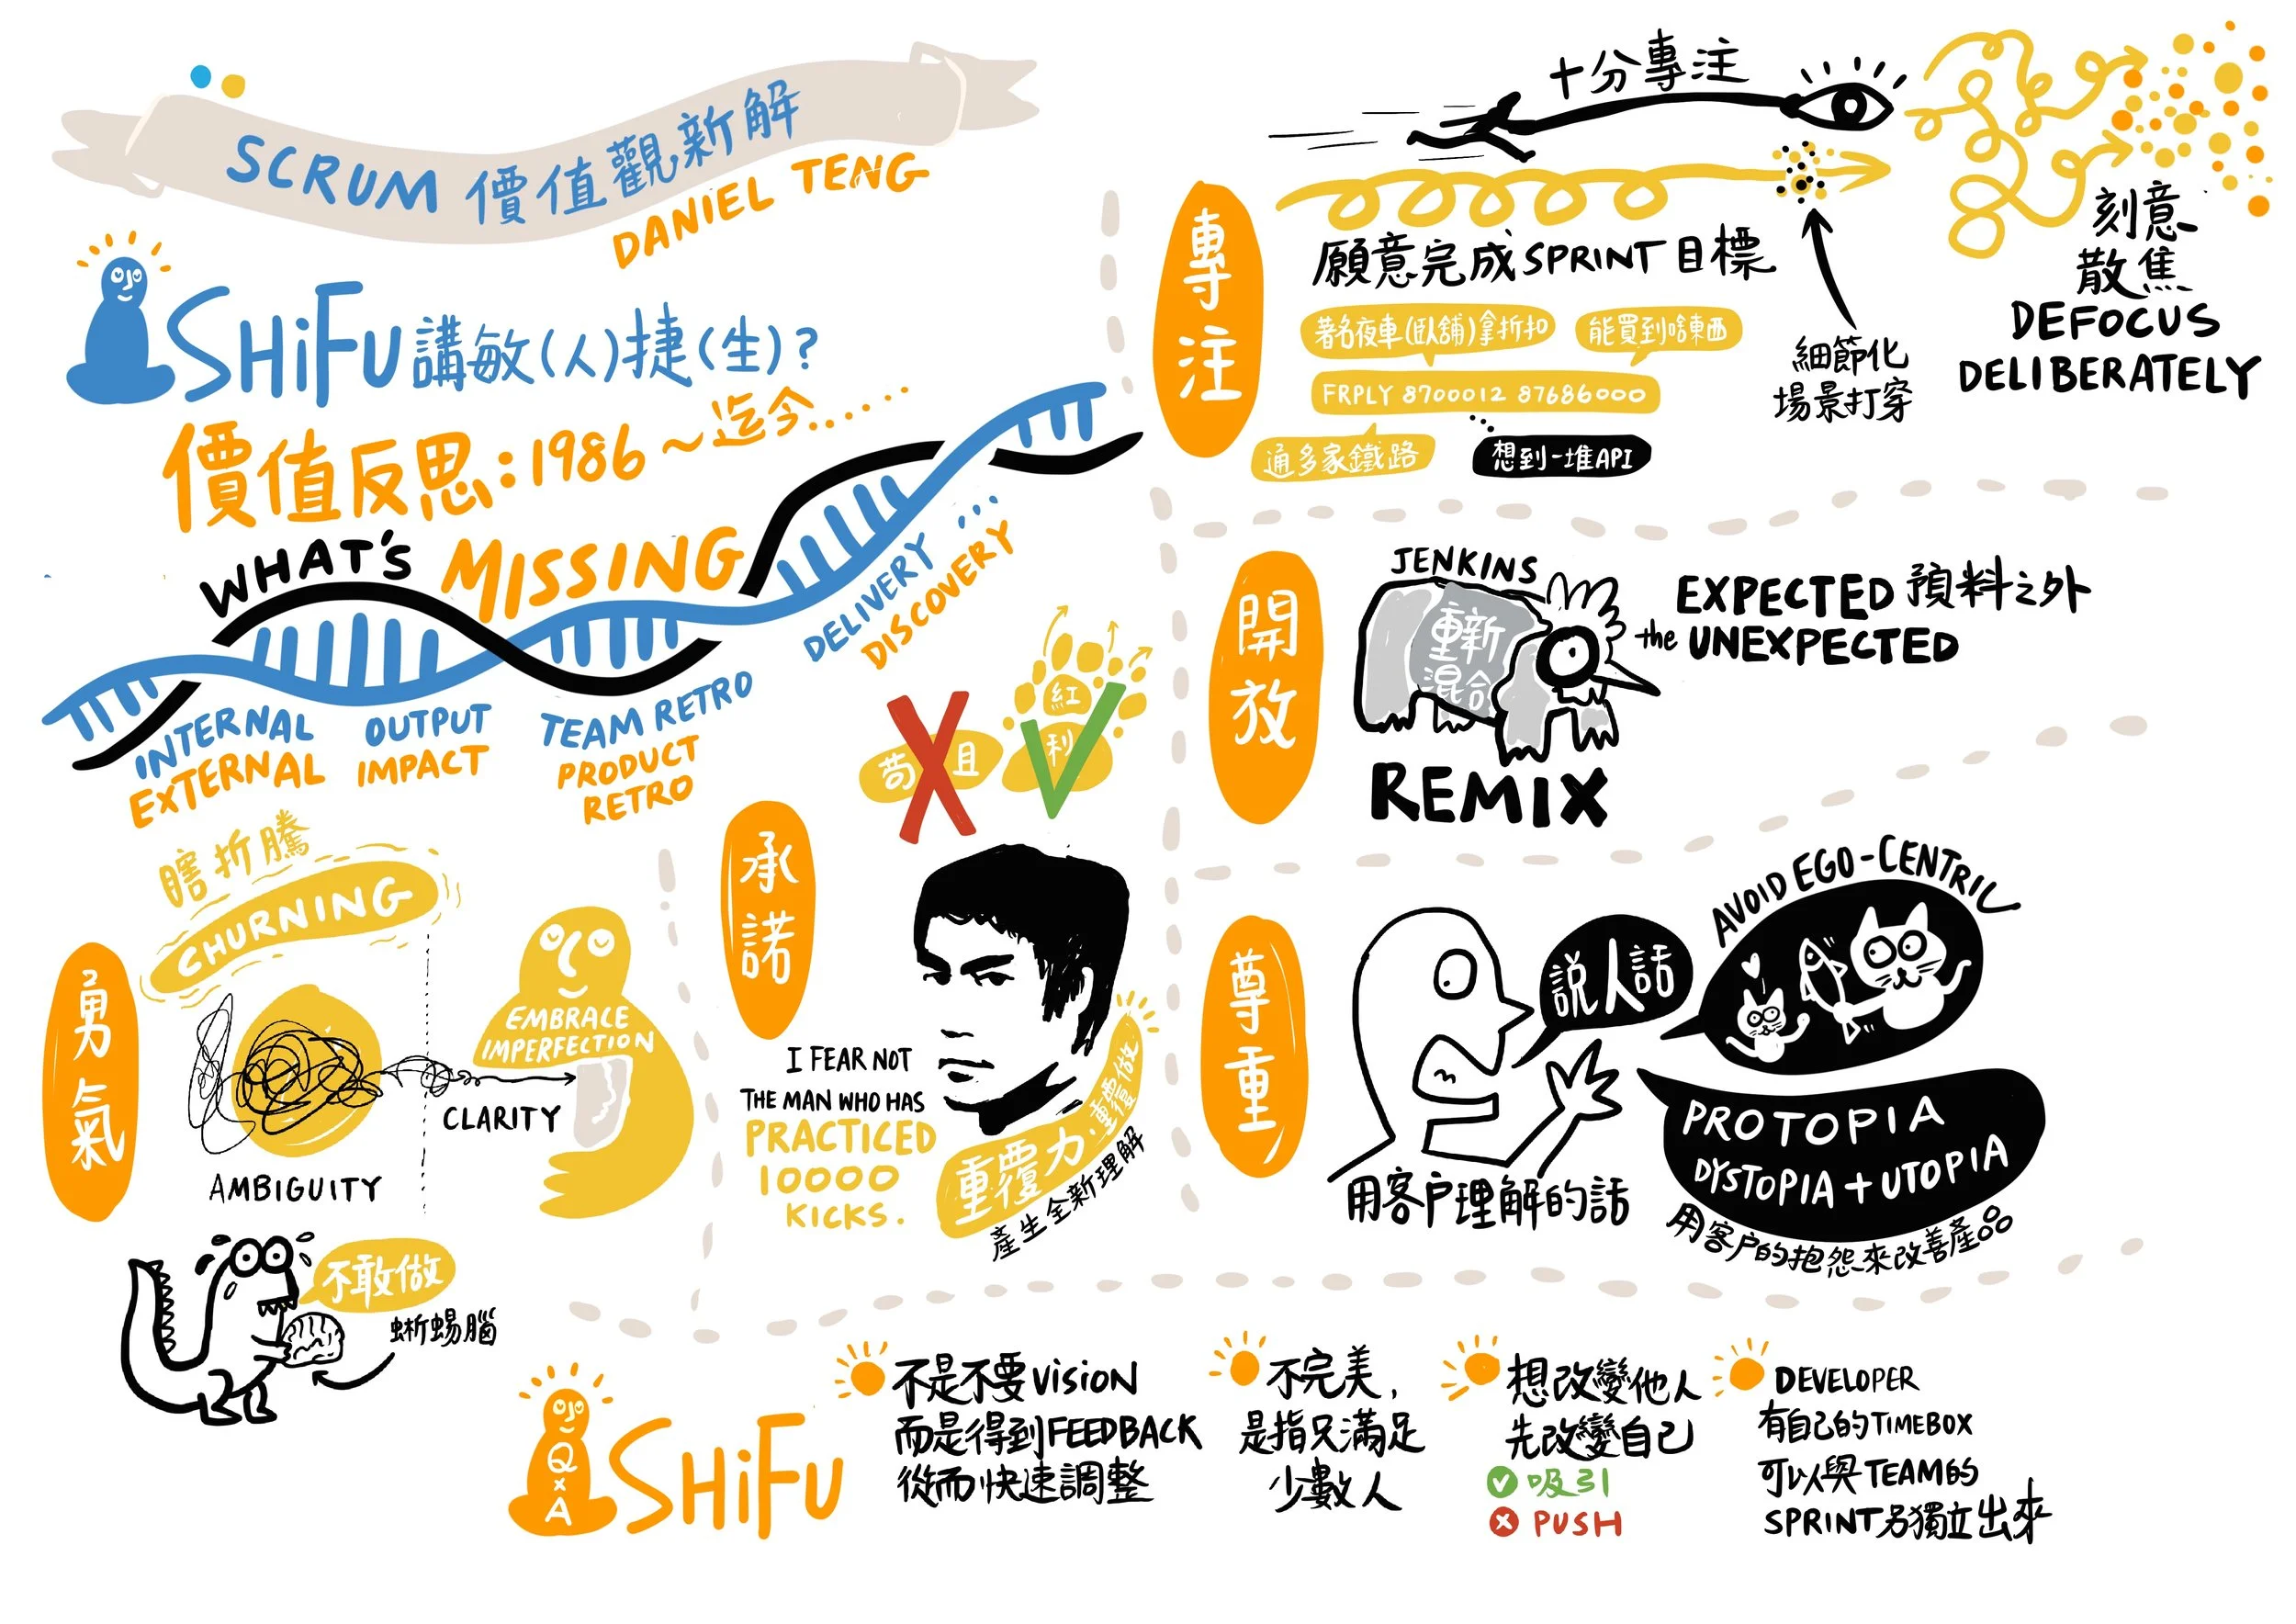 SCRUM 價值觀新解
DANIEL TENG
SHiFU 講敏(人)捷(生)?
價值反思:1986~迄今.....
WHAT'S MISSING
INTERNAL
EXTERNAL
OUTPUT
IMPACT
TEAM RETRO
PRODUCT
RETRO
DELIVERY...
DISCOVERY
勇氣
瞎折騰
CHURNING
AMBIGUITY
CLARITY
EMBRACE
IMPERFECTION
不敢做
蜥蜴腦
承諾
苟且
紅利
I FEAR NOT
THE MAN WHO HAS
PRACTICED
10000
KICKS.
重覆力·重覆做
產生全新理解
專注
十分專注
願意完成SPRINT目標
著名夜車(臥舖)拿折扣
能買到啥東西
FRPLY 8700012 87686000
通多家鐵路
想到一堆API
細節化
場景打穿
刻意
散焦
DEFOCUS
DELIBERATELY
開放
JENKINS
重新
混合
REMIX
EXPECTED 預料之外
the UNEXPECTED
尊重
說人話
用客戶理解的話
AVOID EGO-CENTRIC
PROTOPIA
DYSTOPIA + UTOPIA
用客戶的抱怨來改善產品
Q
x
A
SHiFU
不是不要VISION
而是得到FEEDBACK
從而快速調整
不完美,
是指只滿足
少數人
想改變他人
先改變自己
吸引
PUSH
DEVELOPER
有自己的TIMEBOX
可以與TEAM的
SPRINT另獨立出來